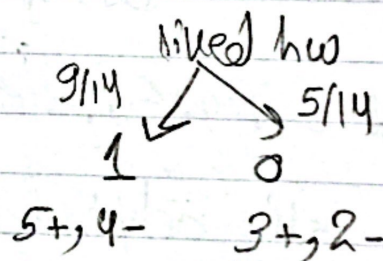 liked hw
9/14 5/14
1 0
5+, 4- 3+, 2-